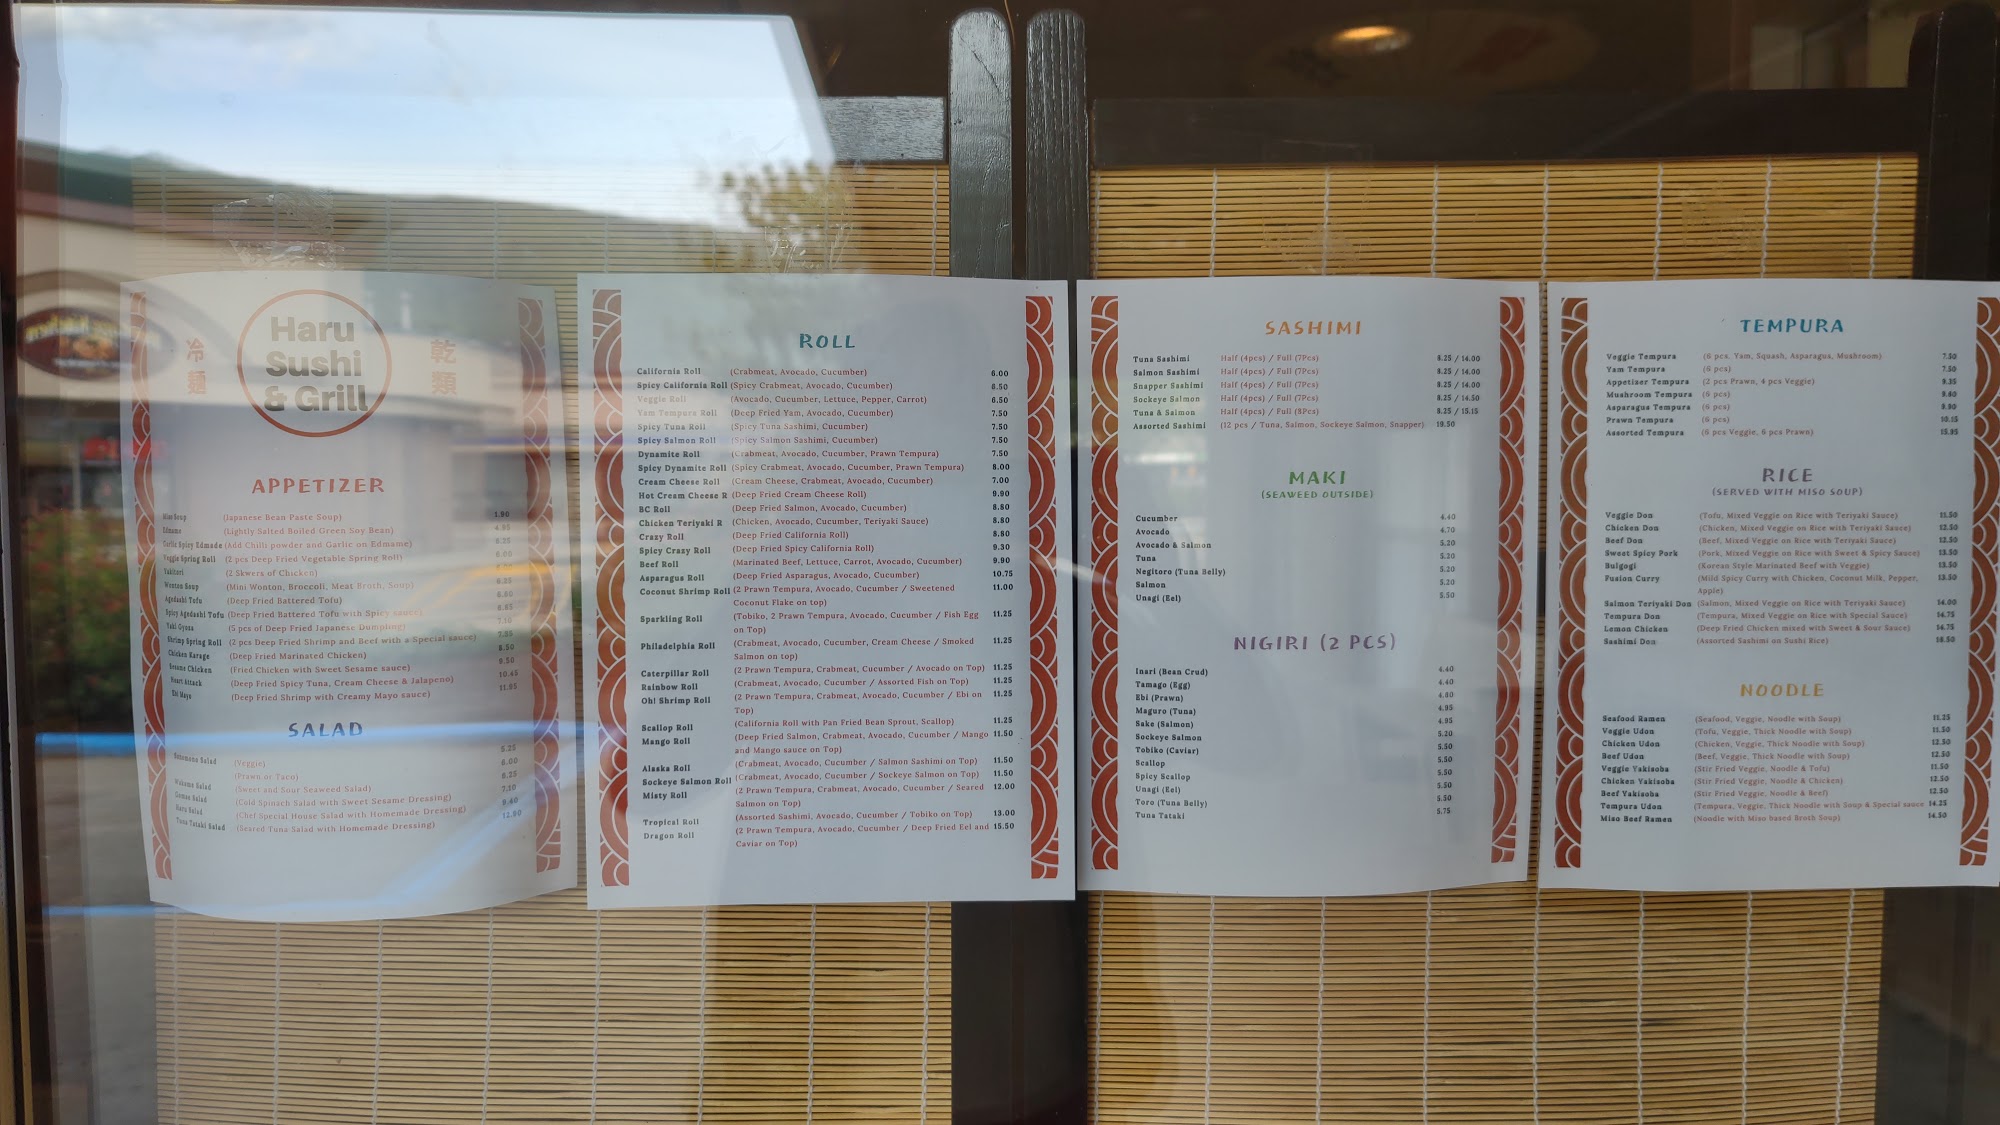 Haru
Sushi
& Grill
冷麺
乾類
APPETIZER
Miso Soup (Japanese Bean Paste Soup) 1.90
Edmame (Lightly Salted Boiled Green Soy Bean) 4.95
Garlic Spicy Edmade (Add Chilli powder and Garlic on Edmame) 6.25
Veggie Spring Roll (2 pcs Deep Fried Vegetable Spring Roll) 6.00
Yakitori (2 Skwers of Chicken)
Wonton Soup (Mini Wonton, Broccoli, Meat Broth, Soup) 6.25
Agadashi Tofu (Deep Fried Battered Tofu) 6.60
Spicy Agadashi Tofu (Deep Fried Battered Tofu with Spicy sauce) 6.95
Yaki Gyoza (5 pcs of Deep Fried Japanese Dumpling) 7.10
Shrimp Spring Roll (2 pcs Deep Fried Shrimp and Beef with a Special sauce) 7.95
Chicken Karage (Deep Fried Marinated Chicken) 8.50
Sesame Chicken (Fried Chicken with Sweet Sesame sauce) 9.50
Heart Attack (Deep Fried Spicy Tuna, Cream Cheese & Jalapeno) 10.45
Ebi Mayo (Deep Fried Shrimp with Creamy Mayo sauce) 11.95
SALAD
Sunomono Salad (Veggie) 5.25
(Prawn or Taco) 6.00
Wakame Salad (Sweet and Sour Seaweed Salad) 6.25
Gomae Salad (Cold Spinach Salad with Sweet Sesame Dressing) 7.10
Haru Salad (Chef Special House Salad with Homemade Dressing) 9.40
Tuna Tataki Salad (Seared Tuna Salad with Homemade Dressing) 12.80
ROLL
California Roll (Crabmeat, Avocado, Cucumber) 6.00
Spicy California Roll (Spicy Crabmeat, Avocado, Cucumber) 6.50
Veggie Roll (Avocado, Cucumber, Lettuce, Pepper, Carrot) 6.50
Yam Tempura Roll (Deep Fried Yam, Avocado, Cucumber) 7.50
Spicy Tuna Roll (Spicy Tuna Sashimi, Cucumber) 7.50
Spicy Salmon Roll (Spicy Salmon Sashimi, Cucumber) 7.50
Dynamite Roll (Crabmeat, Avocado, Cucumber, Prawn Tempura) 7.50
Spicy Dynamite Roll (Spicy Crabmeat, Avocado, Cucumber, Prawn Tempura) 8.00
Cream Cheese Roll (Cream Cheese, Crabmeat, Avocado, Cucumber) 7.00
Hot Cream Cheese R (Deep Fried Cream Cheese Roll) 9.90
BC Roll (Deep Fried Salmon, Avocado, Cucumber) 8.80
Chicken Teriyaki R (Chicken, Avocado, Cucumber, Teriyaki Sauce) 8.80
Crazy Roll (Deep Fried California Roll) 8.80
Spicy Crazy Roll (Deep Fried Spicy California Roll) 9.30
Beef Roll (Marinated Beef, Lettuce, Carrot, Avocado, Cucumber) 9.90
Asparagus Roll (Deep Fried Asparagus, Avocado, Cucumber) 10.75
Coconut Shrimp Roll (2 Prawn Tempura, Avocado, Cucumber / Sweetened 11.00
Coconut Flake on top)
Sparkling Roll (Tobiko, 2 Prawn Tempura, Avocado, Cucumber / Fish Egg 11.25
on Top)
Philadelphia Roll (Crabmeat, Avocado, Cucumber, Cream Cheese / Smoked 11.25
Salmon on top)
Caterpillar Roll (2 Prawn Tempura, Crabmeat, Cucumber / Avocado on Top) 11.25
Rainbow Roll (Crabmeat, Avocado, Cucumber / Assorted Fish on Top) 11.25
Oh! Shrimp Roll (2 Prawn Tempura, Crabmeat, Avocado, Cucumber / Ebi on 11.25
Top)
Scallop Roll (California Roll with Pan Fried Bean Sprout, Scallop) 11.25
Mango Roll (Deep Fried Salmon, Crabmeat, Avocado, Cucumber / Mango 11.50
and Mango sauce on Top)
Alaska Roll (Crabmeat, Avocado, Cucumber / Salmon Sashimi on Top) 11.50
Sockeye Salmon Roll (Crabmeat, Avocado, Cucumber / Sockeye Salmon on Top) 11.50
Misty Roll (2 Prawn Tempura, Crabmeat, Avocado, Cucumber / Seared 12.00
Salmon on Top)
Tropical Roll (Assorted Sashimi, Avocado, Cucumber / Tobiko on Top) 13.00
Dragon Roll (2 Prawn Tempura, Avocado, Cucumber / Deep Fried Eel and 15.50
Caviar on Top)
SASHIMI
Tuna Sashimi Half (4pcs) / Full (7Pcs) 8.25 / 14.00
Salmon Sashimi Half (4pcs) / Full (7Pcs) 8.25 / 14.00
Snapper Sashimi Half (4pcs) / Full (7Pcs) 8.25 / 14.00
Sockeye Salmon Half (4pcs) / Full (7Pcs) 8.25 / 14.50
Tuna & Salmon Half (4pcs) / Full (8Pcs) 8.25 / 15.15
Assorted Sashimi (12 pcs / Tuna, Salmon, Sockeye Salmon, Snapper) 19.50
MAKI
(SEAWEED OUTSIDE)
Cucumber 4.40
Avocado 4.70
Avocado & Salmon 5.20
Tuna 5.20
Negitoro (Tuna Belly) 5.20
Salmon 5.20
Unagi (Eel) 5.50
NIGIRI (2 PCS)
Inari (Bean Crud) 4.40
Tamago (Egg) 4.40
Ebi (Prawn) 4.80
Maguro (Tuna) 4.95
Sake (Salmon) 4.95
Sockeye Salmon 5.20
Tobiko (Caviar) 5.50
Scallop 5.50
Spicy Scallop 5.50
Unagi (Eel) 5.50
Toro (Tuna Belly) 5.50
Tuna Tataki 5.75
TEMPURA
Veggie Tempura (6 pcs. Yam, Squash, Asparagus, Mushroom) 7.50
Yam Tempura (6 pcs) 7.50
Appetizer Tempura (2 pcs Prawn, 4 pcs Veggie) 9.35
Mushroom Tempura (6 pcs) 9.80
Asparagus Tempura (6 pcs) 9.80
Prawn Tempura (6 pcs) 10.15
Assorted Tempura (6 pcs Veggie, 6 pcs Prawn) 15.95
RICE
(SERVED WITH MISO SOUP)
Veggie Don (Tofu, Mixed Veggie on Rice with Teriyaki Sauce) 11.50
Chicken Don (Chicken, Mixed Veggie on Rice with Teriyaki Sauce) 12.50
Beef Don (Beef, Mixed Veggie on Rice with Teriyaki Sauce) 12.50
Sweet Spicy Pork (Pork, Mixed Veggie on Rice with Sweet & Spicy Sauce) 13.50
Bulgogi (Korean Style Marinated Beef with Veggie) 13.50
Fusion Curry (Mild Spicy Curry with Chicken, Coconut Milk, Pepper, 13.50
Apple)
Salmon Teriyaki Don (Salmon, Mixed Veggie on Rice with Teriyaki Sauce) 14.00
Tempura Don (Tempura, Mixed Veggie on Rice with Special Sauce) 14.75
Lemon Chicken (Deep Fried Chicken mixed with Sweet & Sour Sauce) 14.75
Sashimi Don (Assorted Sashimi on Sushi Rice) 16.50
NOODLE
Seafood Ramen (Seafood, Veggie, Noodle with Soup) 11.25
Veggie Udon (Tofu, Veggie, Thick Noodle with Soup) 11.50
Chicken Udon (Chicken, Veggie, Thick Noodle with Soup) 12.50
Beef Udon (Beef, Veggie, Thick Noodle with Soup) 12.50
Veggie Yakisoba (Stir Fried Veggie, Noodle & Tofu) 11.50
Chicken Yakisoba (Stir Fried Veggie, Noodle & Chicken) 12.50
Beef Yakisoba (Stir Fried Veggie, Noodle & Beef) 12.50
Tempura Udon (Tempura, Veggie, Thick Noodle with Soup & Special sauce 14.25
Miso Beef Ramen (Noodle with Miso based Broth Soup) 14.50